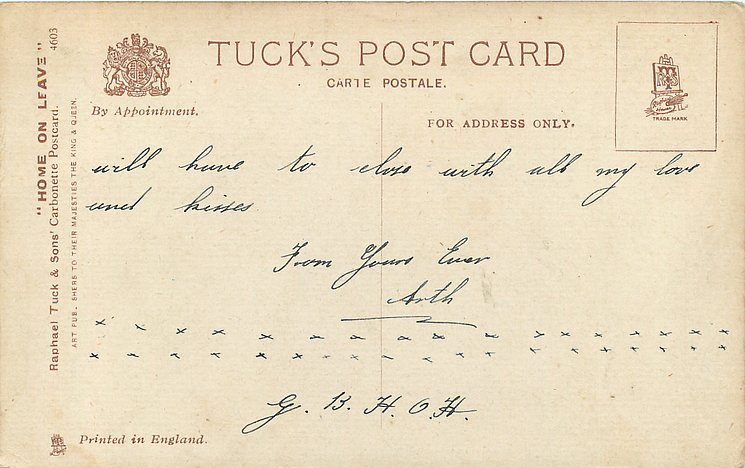 "HOME ON LEAVE" 4603
Raphael Tuck & Sons' Carbonette Postcard.
ART PUBLISHERS TO THEIR MAJESTIES THE KING & QUEEN.
TUCK'S POST CARD
CARTE POSTALE.
By Appointment.
FOR ADDRESS ONLY.
TRADE MARK
will have to close with all my love
and kisses.
From Yours Ever
Arth
x x x x x x x x x x x x x x x x x x
x x x x x x x x x x x x x x x x x x
G. B. H. O. H.
Printed in England.